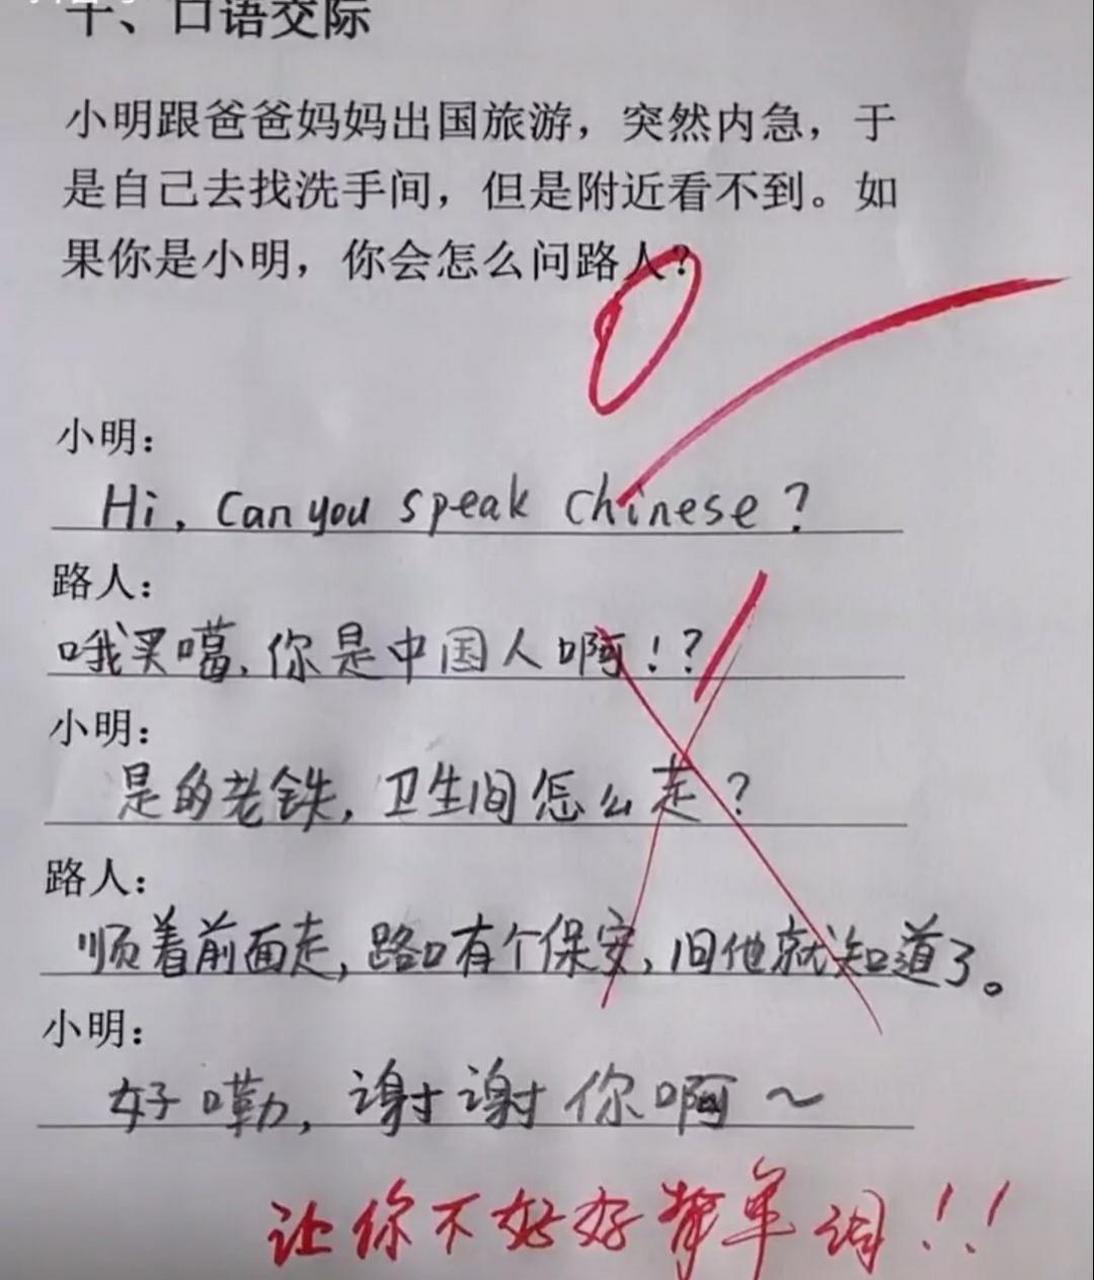 十、口语交际
小明跟爸爸妈妈出国旅游，突然内急，于
是自己去找洗手间，但是附近看不到。如
果你是小明，你会怎么问路人？
0
小明：
Hi, Can you speak Chinese ?
路人：
哦买噶，你是中国人啊！？
小明：
是的老铁，卫生间怎么走？
路人：
顺着前面走，路口有个保安，问他就知道了。
小明：
好嘞，谢谢你啊～
让你不好好背单词！！